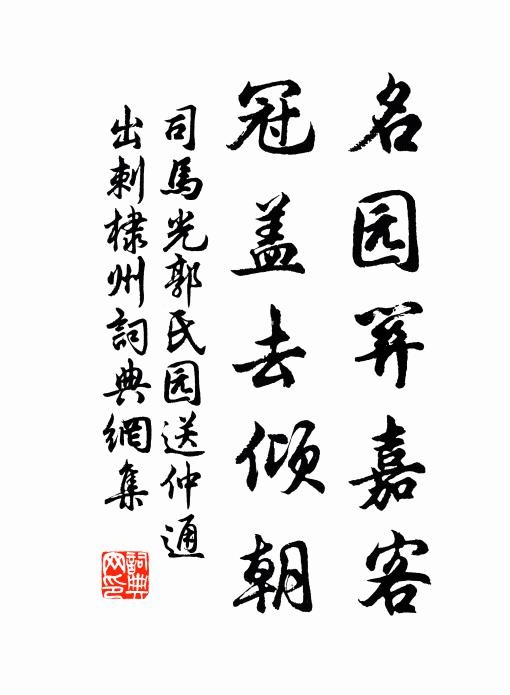 名园羿嘉客
冠盖去倾朝
司馬光郭氏园送仲通
出刺棣州詞典網集
詞典网印